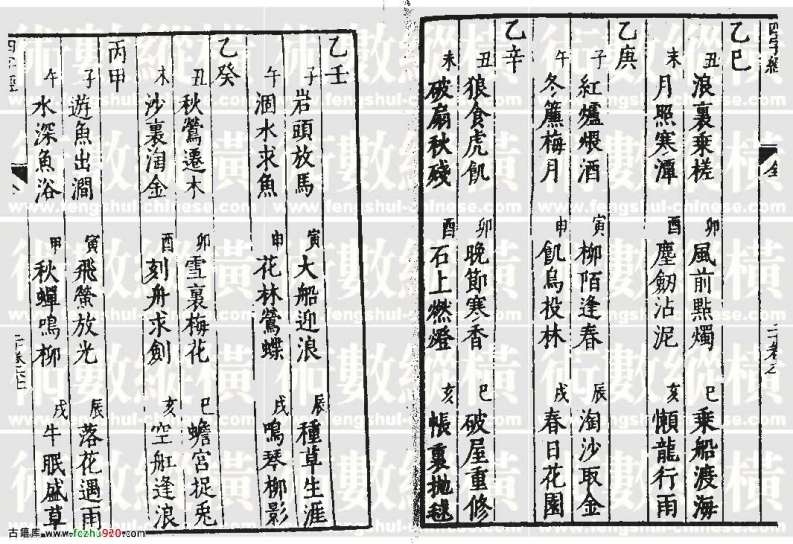 乙巳
丑 浪裏乘槎 卯 風前點燭 巳 乘船渡海
未 月照寒潭 酉 塵劒沾泥 亥 懶龍行雨
乙庚
子 紅爐煨酒 寅 柳陌逢春 辰 淘沙取金
午 冬簾梅月 申 飢鳥投林 戌 春日花園
乙辛
丑 狼食虎飢 卯 晚節寒香 巳 破屋重修
未 破扇秋殘 酉 石上燃燈 亥 帳裏拋毬
乙壬
子 岩頭放馬 寅 大船迎浪 辰 種草生涯
午 涸水求魚 申 花林鶯蝶 戌 鳴琴柳影
乙癸
丑 秋鶯遷木 卯 雪裏梅花 巳 蟾宮捉兎
未 沙裏淘金 酉 刻舟求劍 亥 空舡逢浪
丙甲
子 遊魚出澗 寅 飛螢放光 辰 落花遇雨
午 水深魚浴 甲 秋蟬鳴柳 戌 牛眠盛草
術數縱橫
www.fengshui-chinese.com
古籍库 www.fozhu920.com